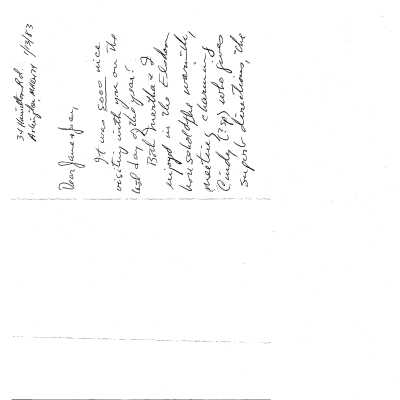 34 Hamilton Rd.
Arlington MA 02174 1/3/83
Dear James & Jay,
It was sooo nice
visiting with you on the
last day of the year!
Both Martha & I
enjoyed in the
household the warmth,
meeting charming
Cindy (?sp) who gives
superb directions, the